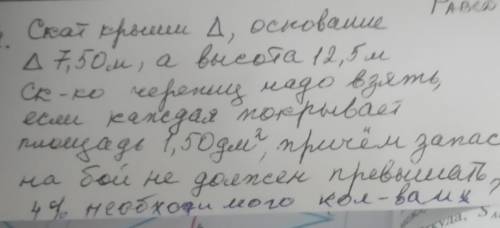 Скат крыши Δ, основание
Δ 7,50м, а высота 12,5м
Ск-ко черепиц надо взять,
если каждая покрывает
площадь 1,50дм², причём запас
на бой не должен превышать
4% необходимого кол-ва их